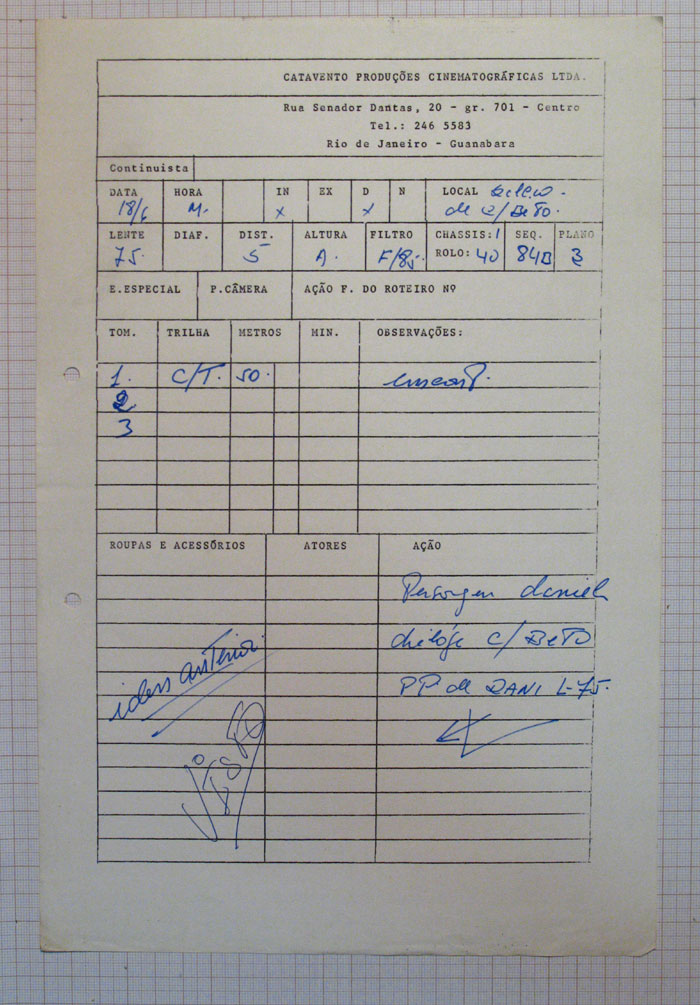 CATAVENTO PRODUÇÕES CINEMATOGRÁFICAS LTDA.
Rua Senador Dantas, 20 - gr. 701 - Centro
Tel.: 246 5583
Rio de Janeiro - Guanabara
Continuista
DATA HORA IN EX D N LOCAL
18/6 M. x x de BETO.
LENTE DIAF. DIST. ALTURA FILTRO CHASSIS: 1 SEQ. PLANO
75. 5 A. F/85. ROLO: 40 84B 3
E.ESPECIAL P.CÂMERA AÇÃO F. DO ROTEIRO Nº
TOM. TRILHA METROS MIN. OBSERVAÇÕES:
1. C/T. 50.
2
3
ROUPAS E ACESSÓRIOS ATORES AÇÃO
Daniel
C/ BETO
idem anterior. PP de DANI L-75.
VISTO